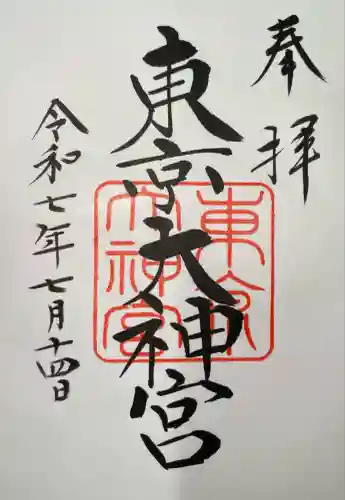 奉拝
東京大神宮
東京大神宮
令和七年七月十四日